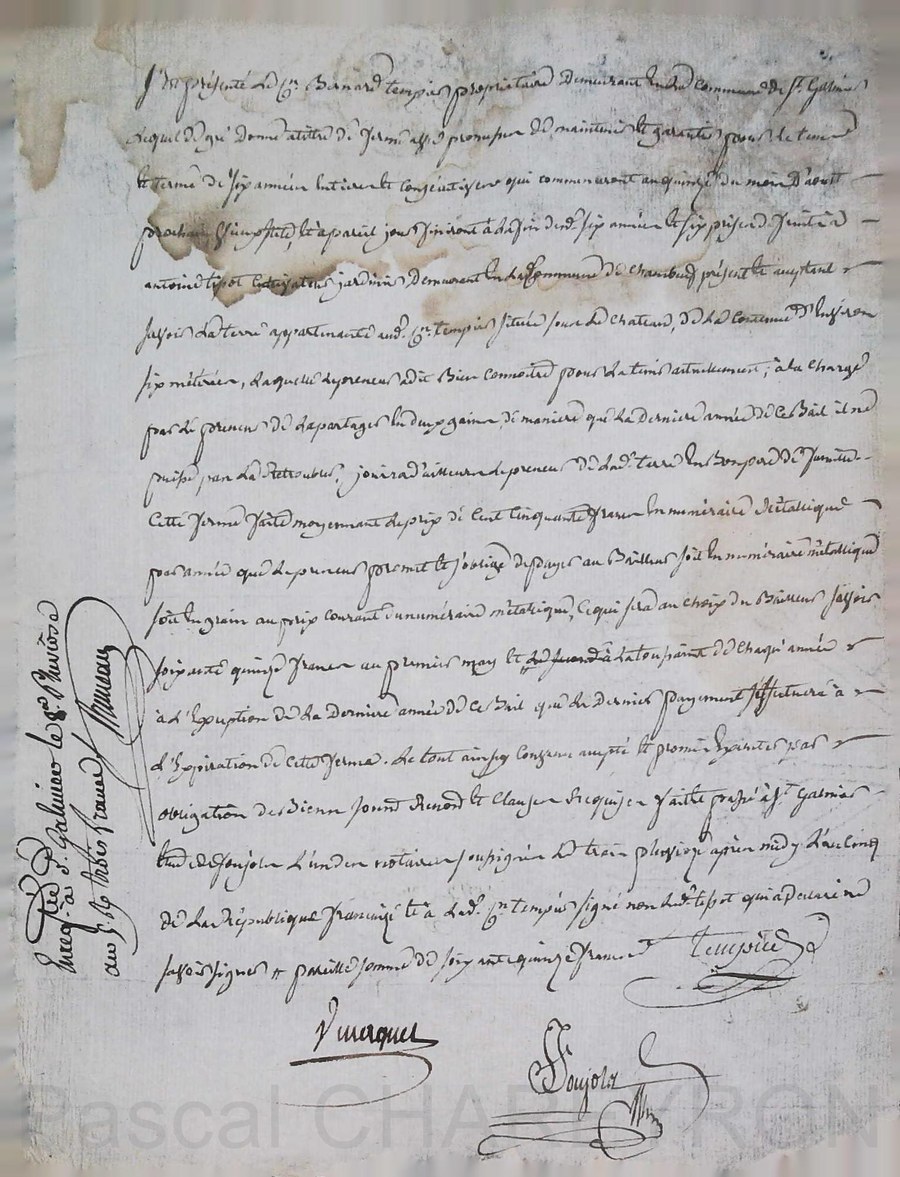 présenté le Cn. Bernard tempier propriétaire Demeurant en la commune de St. Galmier
lequel de gré donne a titre de ferme avec promesse de maintenir et garantir pour le tems
et terme de six années entieres et consécutives qui commenceront au quinze du mois D'aoust
prochain et à pareil jour finiront à la fin desd. six années et six prises de fruits à
antoine jardinier Demeurant en la Commune de chambeuf présent et acceptant
savoir La terre appartenante aud. Cn. tempier située sous le Chateau, de la Contenue D'environ
six métérées, Laquelle le preneur a dit Bien Connoitre pour la tenir actuellement; à la charge
par le preneur de la partager en deux gains, de maniere que la derniere année de ce Bail il ne
puisse pas la Retroubler, jouira d'ailleurs le preneur de lad. terre en Bon pere de famille
Cette ferme faite moyennant le prix de Cent Cinquante francs En numéraire métallique
par année que le preneur promet et s'oblige de payer au Bailleur soit en numéraire métallique
soit en grain au prix courant du numéraire métallique, ce qui sera au choix du Bailleur savoir
soixante quinze francs au premier may et à la toussaint de chaque année
à l'Exception de la derniere année de ce Bail que le dernier payement s'effectuera à
l'Expiration de cette ferme. Le tout ainsy convenu accepté et promis Exécuter par
obligation de Biens soumis. Renond. et Clauses Requises fait et passé à St. Galmier
Etude de Soujolz L'un des notaires soussignés le trois pluviose après midy L'an Cinq
de la République française et a led. Cn. tempier signé non led. qui a déclaré ne
savoir signer # pareille somme de soixante quinze francs tempier
Soujolz
Enreg. à St. Galmier le 8 Pluviose
an 5. trois francs
Pascal CHAMBEYRON